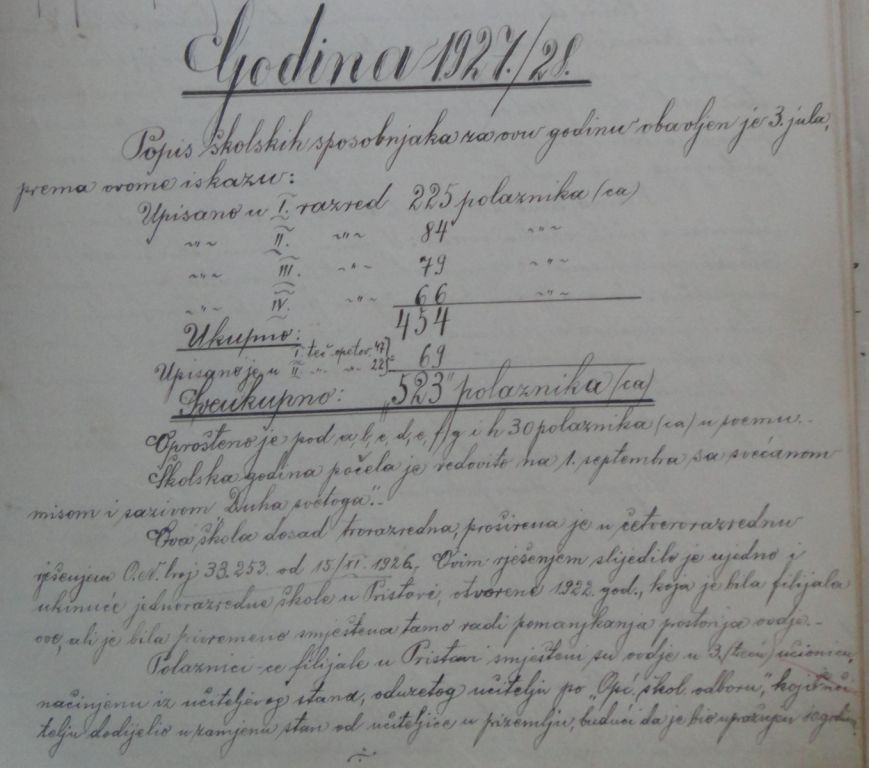 Godina 1927./28.
Popis školskih sposobnjaka za ovu godinu obavljen je 3. jula,
prema ovome iskazu:
Upisano u I. razred 225 polaznika (ca)
~"~ II. ~"~ 84 ~"~
~"~ III. ~"~ 79 ~"~
~"~ IV. ~"~ 66 ~"~
Ukupno: 454
Upisano je u I teč. opetov. 47
II " " 22 } = 69
Sveukupno: „523" polaznika (ca)
Oprošteno je pod a, b, c, d, e, f, g i h 30 polaznika (ca) u svemu.-
Školska godina počela je redovito na 1. septembra sa svečanom
misom i sazivom Duha svetoga".-
Ova škola dosad trorazredna, proširena je u četverorazrednu
rješenjem O.N. broj 33.253. od 15./XI. 1926. Ovim rješenjem slijedilo je ujedno i
ukinuće jednorazredne škole u Pristavi, otvorene 1922. god., koja je bila filijala
ove, ali je bila privremeno smještena tamo radi pomanjkanja prostorija ovdje.-
Polaznici-ce filijale u Pristavi smješteni su ovdje u 3. (treću) učionicu,
načinjenu iz učiteljevog stana, oduzetog učitelju po „Opć. škol. odboru", koji
telju dodijelio u zamjenu stan od učiteljice u prizemlju, budući da je bio upražnjen 10 godin